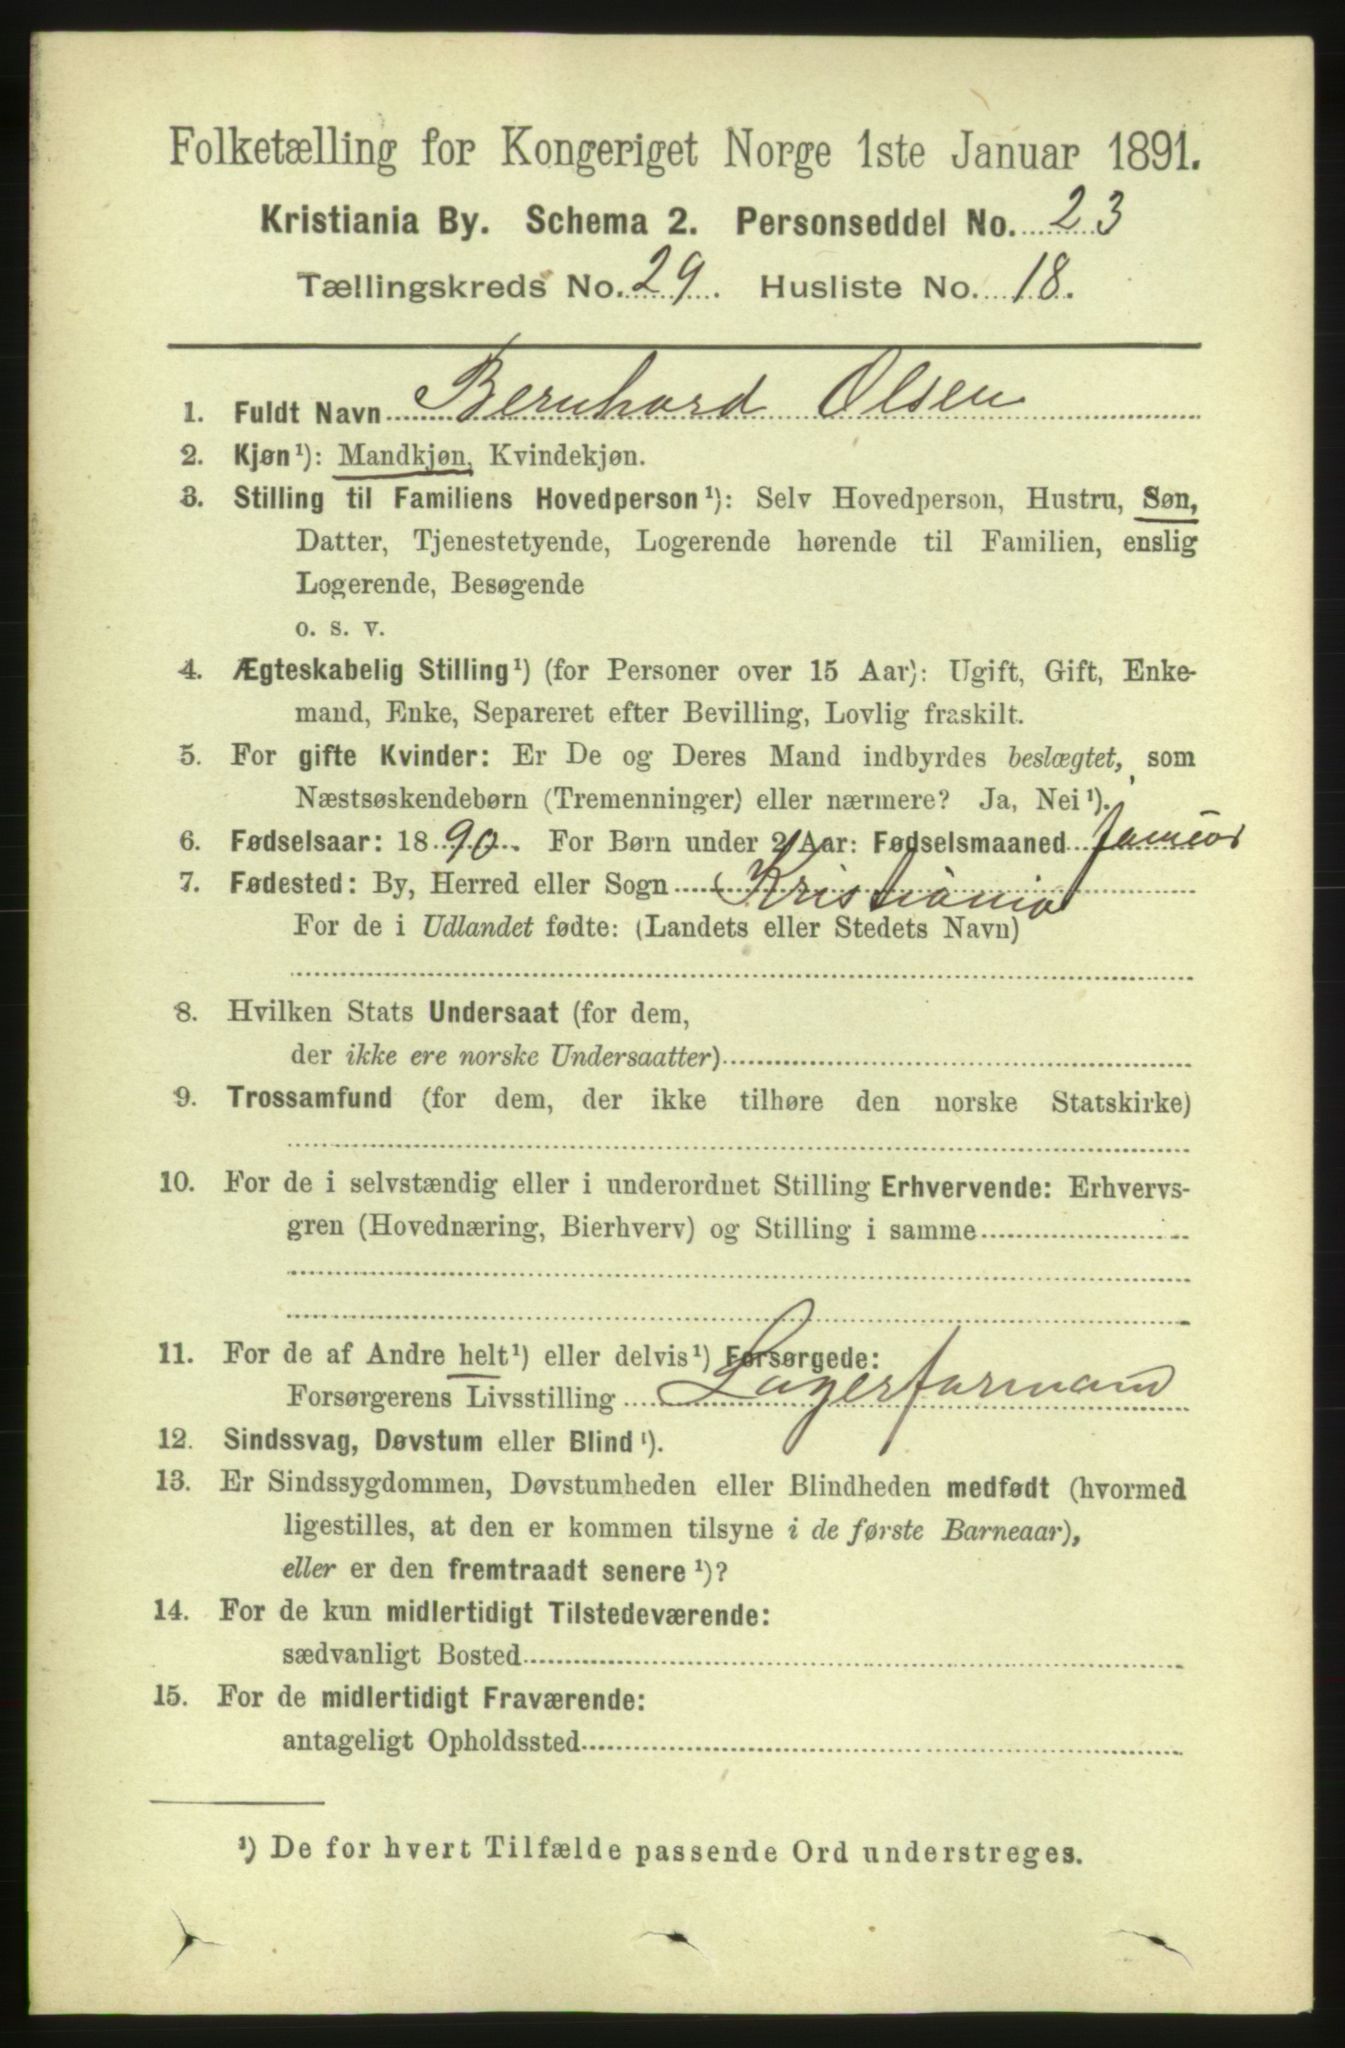 Folketælling for Kongeriget Norge 1ste Januar 1891.
Kristiania By. Schema 2. Personseddel No. 23
Tællingskreds No. 29. Husliste No. 18.
1. Fuldt Navn Bernhard Olsen
2. Kjøn¹): Mandkjøn, Kvindekjøn.
3. Stilling til Familiens Hovedperson¹): Selv Hovedperson, Hustru, Søn,
Datter, Tjenestetyende, Logerende hørende til Familien, enslig
Logerende, Besøgende
o. s. v.
4. Ægteskabelig Stilling¹) (for Personer over 15 Aar): Ugift, Gift, Enke-
mand, Enke, Separeret efter Bevilling, Lovlig fraskilt.
5. For gifte Kvinder: Er De og Deres Mand indbyrdes beslægtet, som
Næstsøskendebørn (Tremenninger) eller nærmere? Ja, Nei¹).
6. Fødselsaar: 1890. For Børn under 2 Aar: Fødselsmaaned Januar
7. Fødested: By, Herred eller Sogn Kristiania
For de i Udlandet fødte: (Landets eller Stedets Navn)
8. Hvilken Stats Undersaat (for dem,
der ikke ere norske Undersaatter)
9. Trossamfund (for dem, der ikke tilhøre den norske Statskirke)
10. For de i selvstændig eller i underordnet Stilling Erhvervende: Erhvervs-
gren (Hovednæring, Bierhverv) og Stilling i samme
11. For de af Andre helt¹) eller delvis¹) Forsørgede:
Forsørgerens Livsstilling Lagerformand
12. Sindssvag, Døvstum eller Blind¹).
13. Er Sindssygdommen, Døvstumheden eller Blindheden medfødt (hvormed
ligestilles, at den er kommen tilsyne i de første Barneaar),
eller er den fremtraadt senere¹)?
14. For de kun midlertidigt Tilstedeværende:
sædvanligt Bosted
15. For de midlertidigt Fraværende:
antageligt Opholdssted
¹) De for hvert Tilfælde passende Ord understreges.